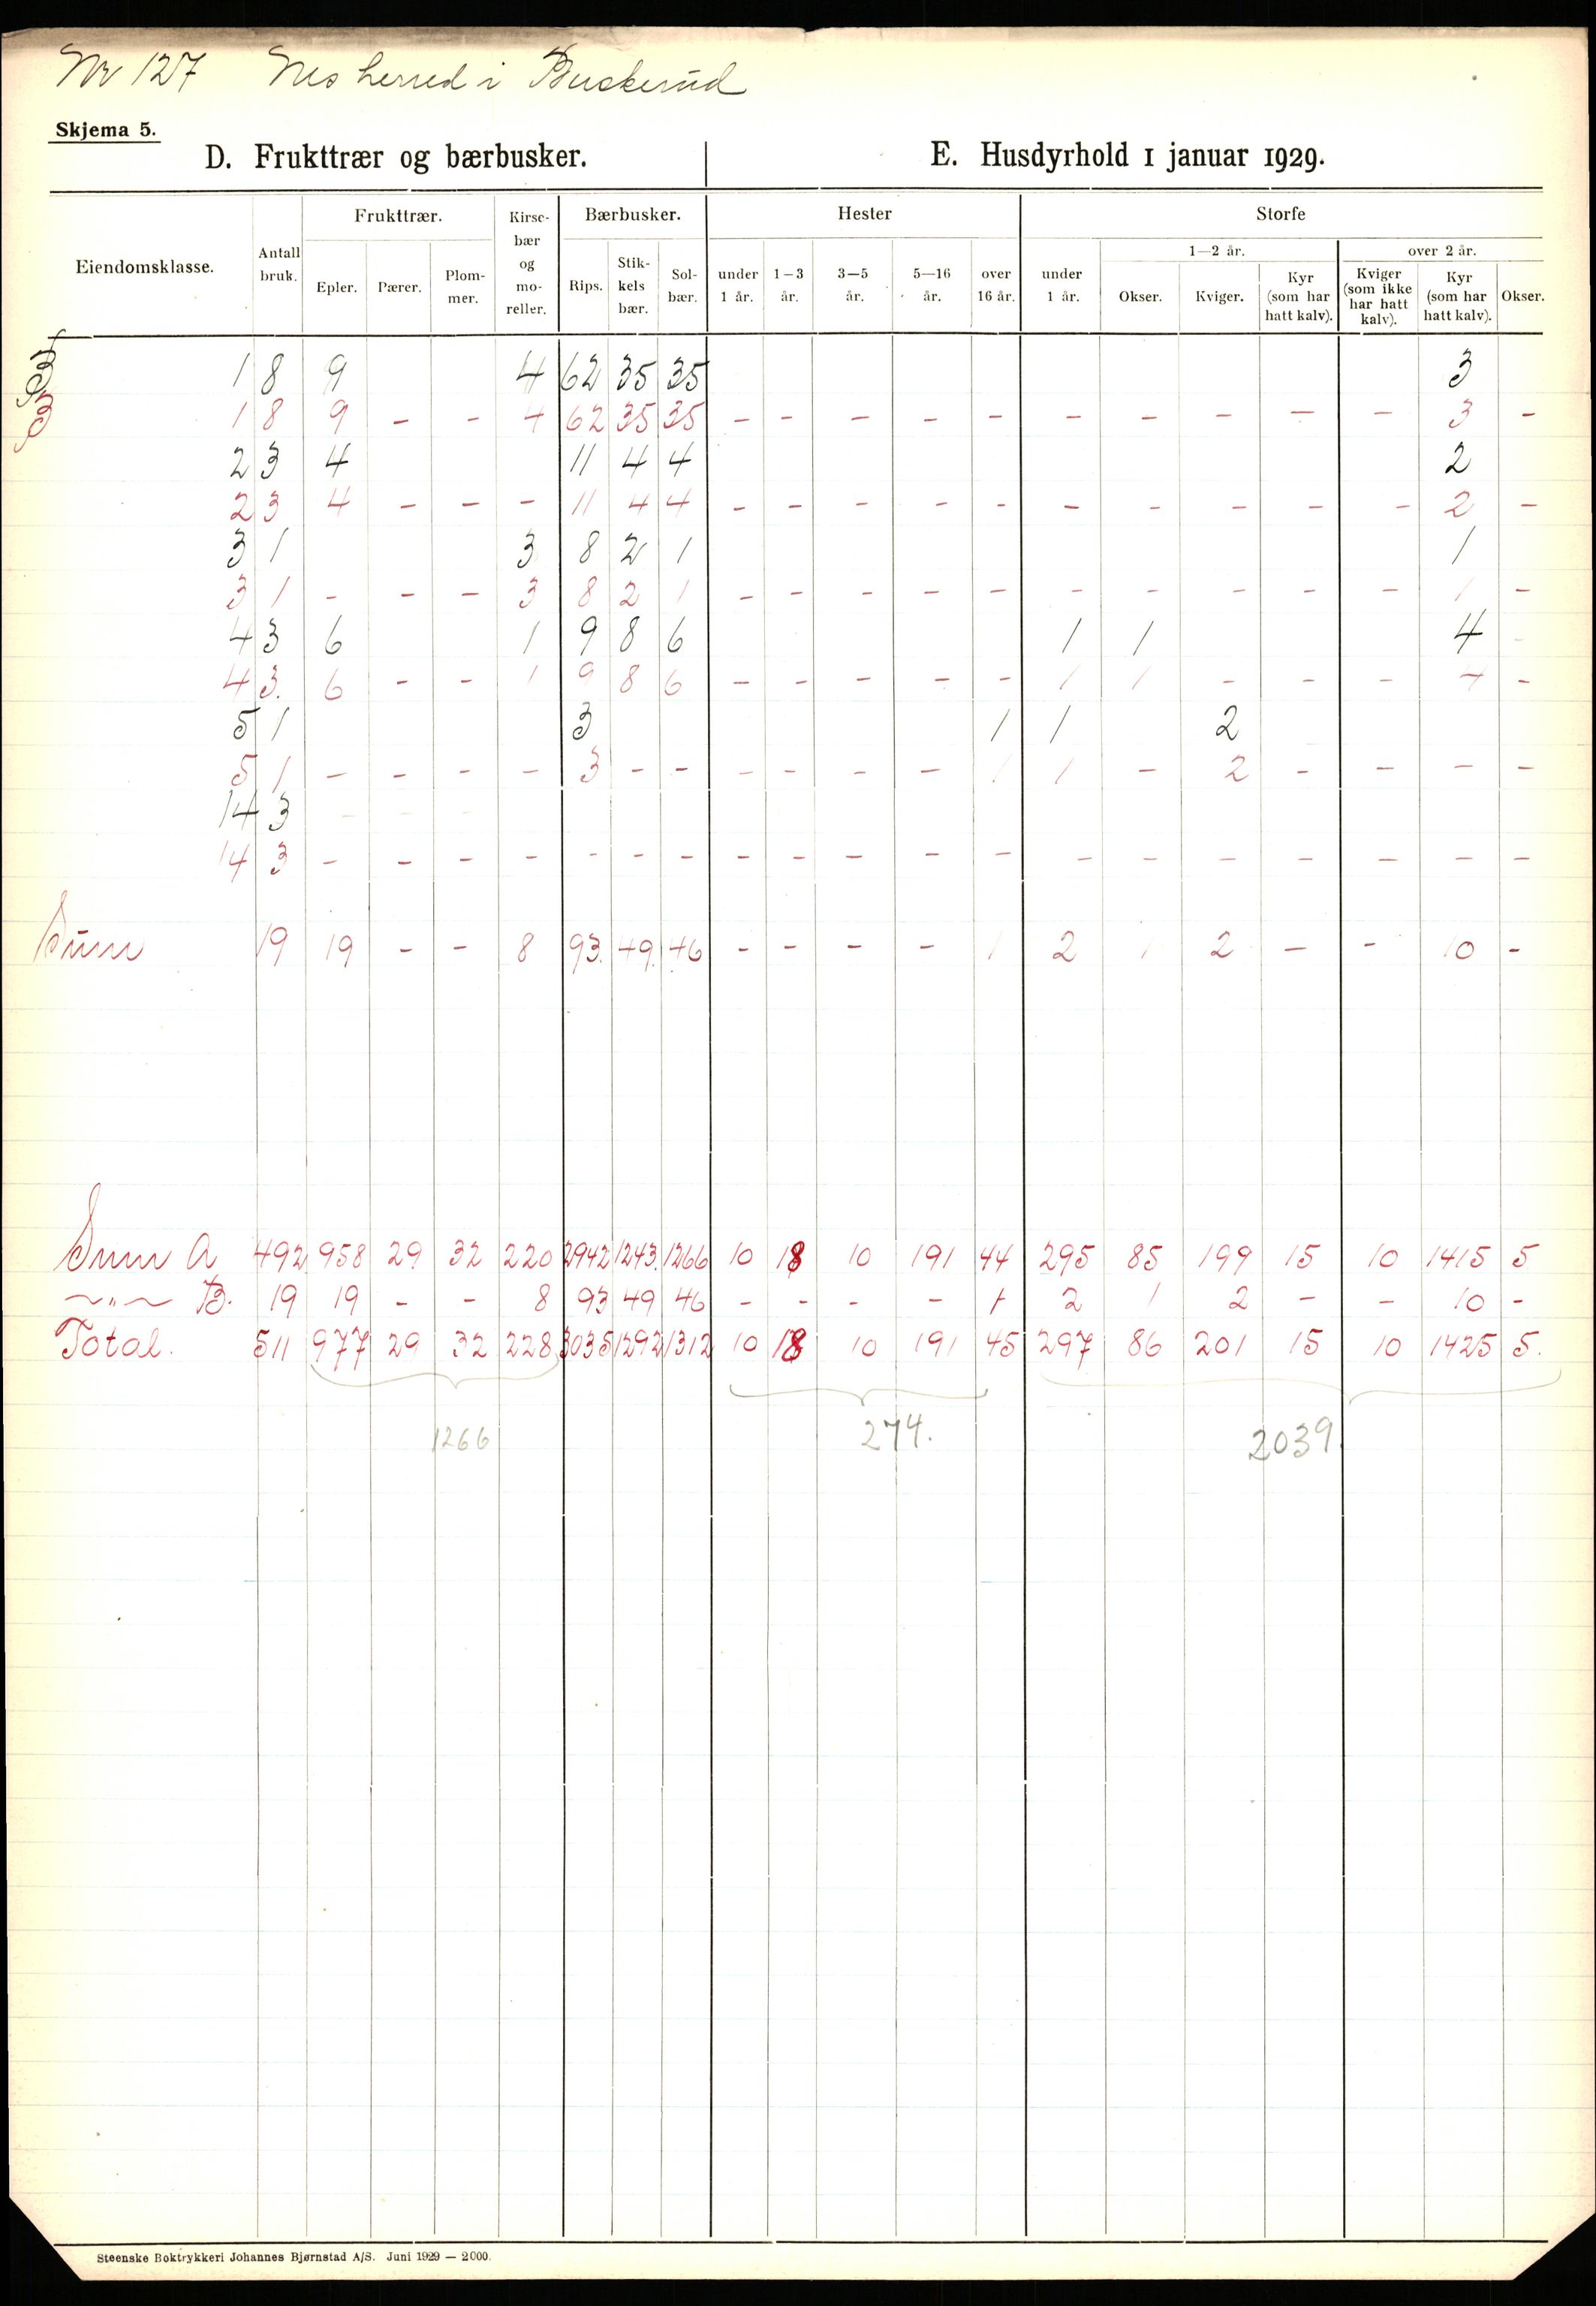 Nr 127 Nes herred i Buskerud
Skjema 5.
D. Frukttrær og bærbusker. E. Husdyrhold 1 januar 1929.
Eiendomsklasse. Antall bruk. Frukttrær. Epler. Pærer. Plommer. Kirsebær og moreller. Bærbusker. Rips. Stikkels bær. Solbær. Hester under 1 år. 1–3 år. 3–5 år. 5–16 år. over 16 år. Storfe under 1 år. 1–2 år. Okser. Kviger. Kyr (som har hatt kalv). over 2 år. Kviger (som ikke har hatt kalv). Kyr (som har hatt kalv). Okser.
B
B
1 8 9 4 62 35 35 3
1 8 9 - - 4 62 35 35 - - - - - - - - - - 3 -
2 3 4 11 4 4 2
2 3 4 - - - 11 4 4 - - - - - - - - - - 2 -
3 1 3 8 2 1 1
3 1 - - - 3 8 2 1 - - - - - - - - - - 1 -
4 3 6 1 9 8 6 1 1 4
4 3. 6 - - 1 9 8 6 - - - - - 1 1 - - - 4 -
5 1 3 1 1 2
5 1 - - - - 3 - - - - - - 1 1 - 2 - - - -
14 3
14 3 - - - - - - - - - - - - - - - - - - -
Sum 19 19 - - 8 93. 49. 46 - - - - 1 2 1 2 - - 10 -
Sum A 492 958 29 32 220 2942 1243. 1266 10 18 10 191 44 295 85 199 15 10 1415 5
~"~ B. 19 19 - - 8 93 49 46 - - - - 1 2 1 2 - - 10 -
Total. 511 977 29 32 228 3035 1292 1312 10 18 10 191 45 297 86 201 15 10 1425 5.
1266 274. 2039
Steenske Boktrykkeri Johannes Bjørnstad A/S. Juni 1929 — 2000.